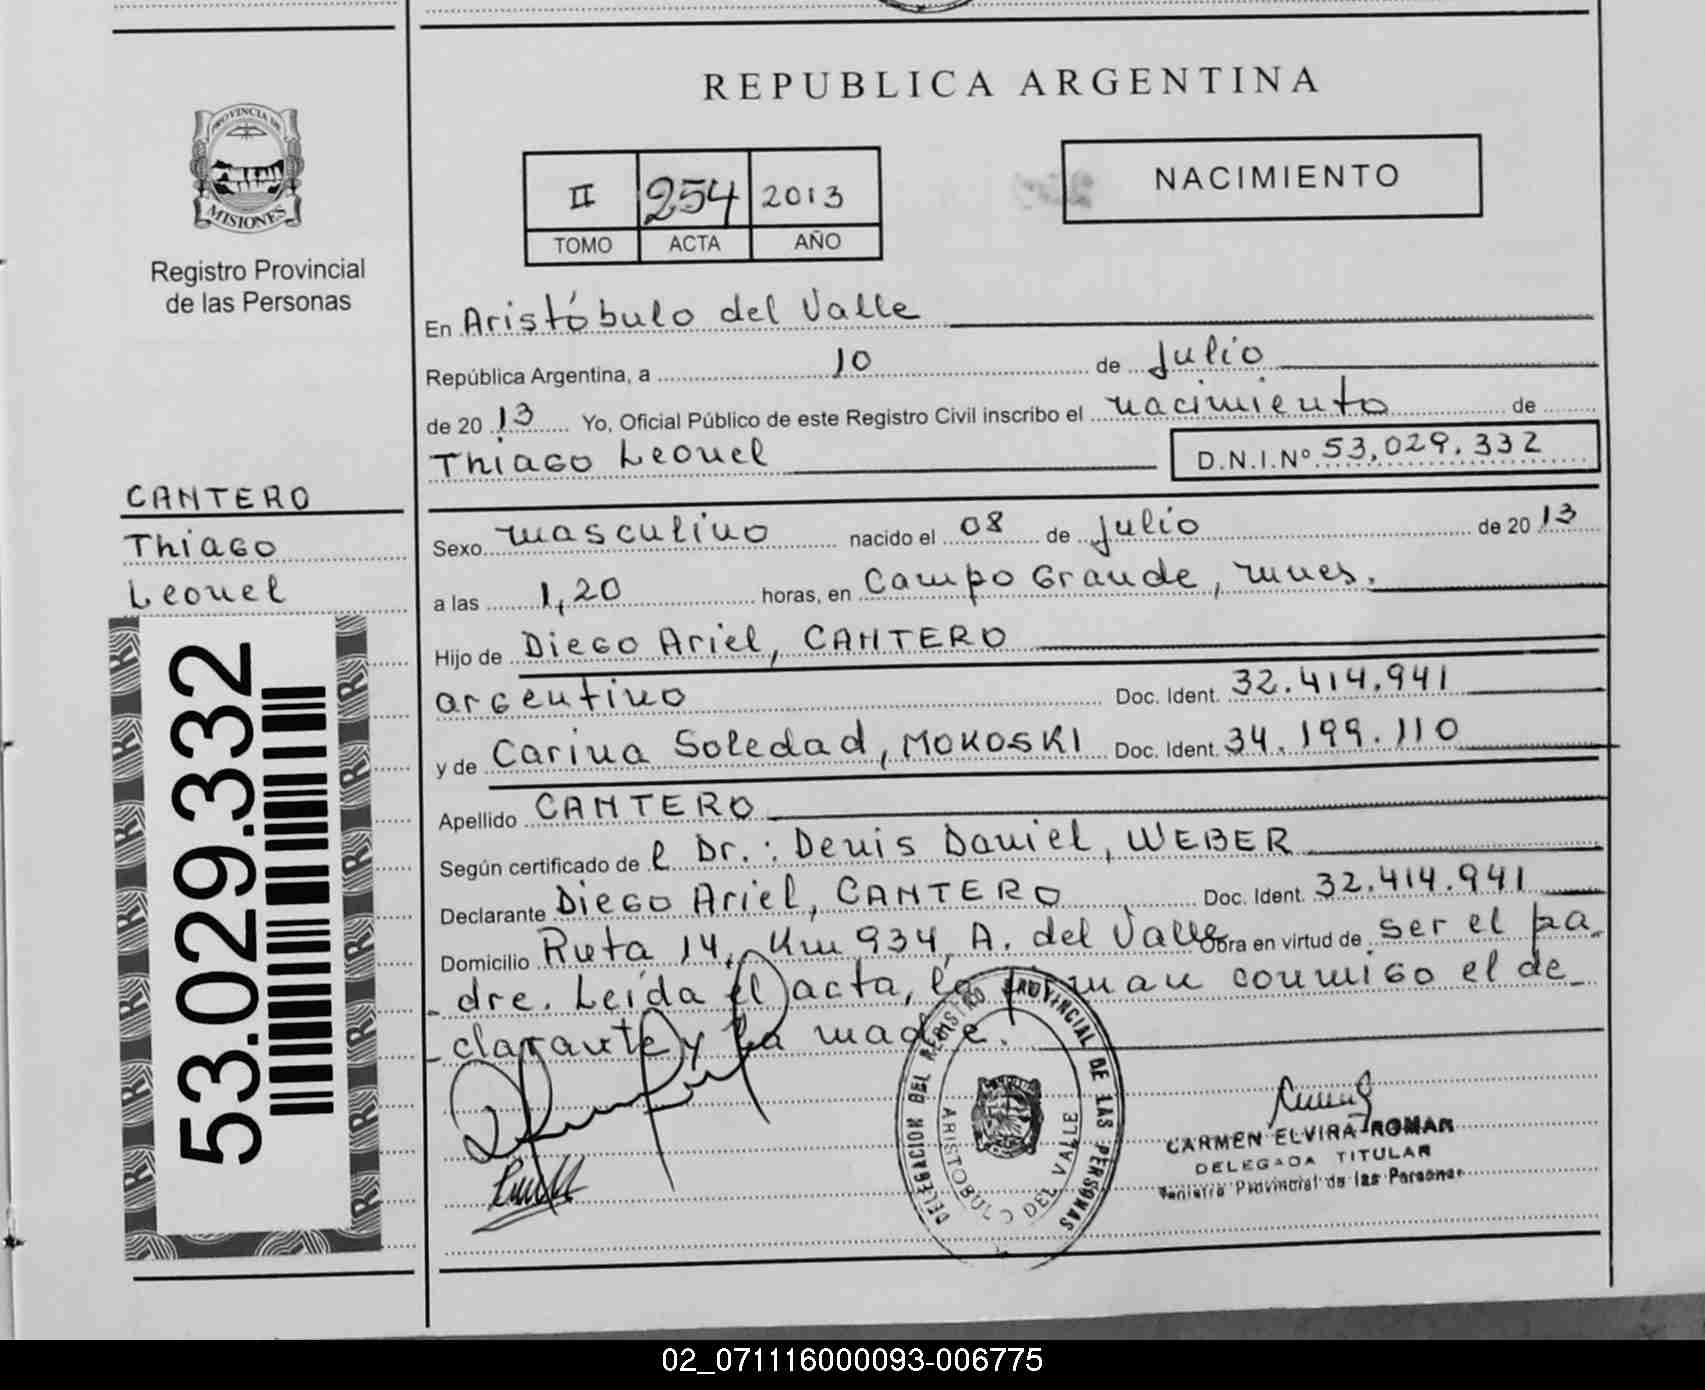 REPUBLICA ARGENTINA
PROVINCIA DE
MISIONES
Registro Provincial
de las Personas
II 254 2013
TOMO ACTA AÑO
NACIMIENTO
En Aristóbulo del Valle
República Argentina, a 10 de Julio
de 20 13 Yo, Oficial Público de este Registro Civil inscribo el nacimiento de
Thiago Leonel D.N.I.Nº 53,029.332
CANTERO
Thiago
Leonel
53.029.332
Sexo masculino nacido el 08 de Julio de 20 13
a las 1,20 horas, en Campo Grande, mnes.
Hijo de Diego Ariel, CANTERO
argentino Doc. Ident. 32.414.941
y de Carina Soledad, MOKOSKI Doc. Ident. 34.199.110
Apellido CANTERO
Según certificado de l Dr.: Denis Daniel, WEBER
Declarante Diego Ariel, CANTERO Doc. Ident. 32.414.941
Domicilio Ruta 14, Km 934, A. del Valle Obra en virtud de ser el pa_
_dre. Leída el acta, la firman conmigo el de_
_clarante y la madre.
DELEGACION DEL REGISTRO PROVINCIAL DE LAS PERSONAS
ARISTOBULO DEL VALLE
CARMEN ELVIRA ROMAN
DELEGADA TITULAR
Provincial de las Personas
02_071116000093-006775